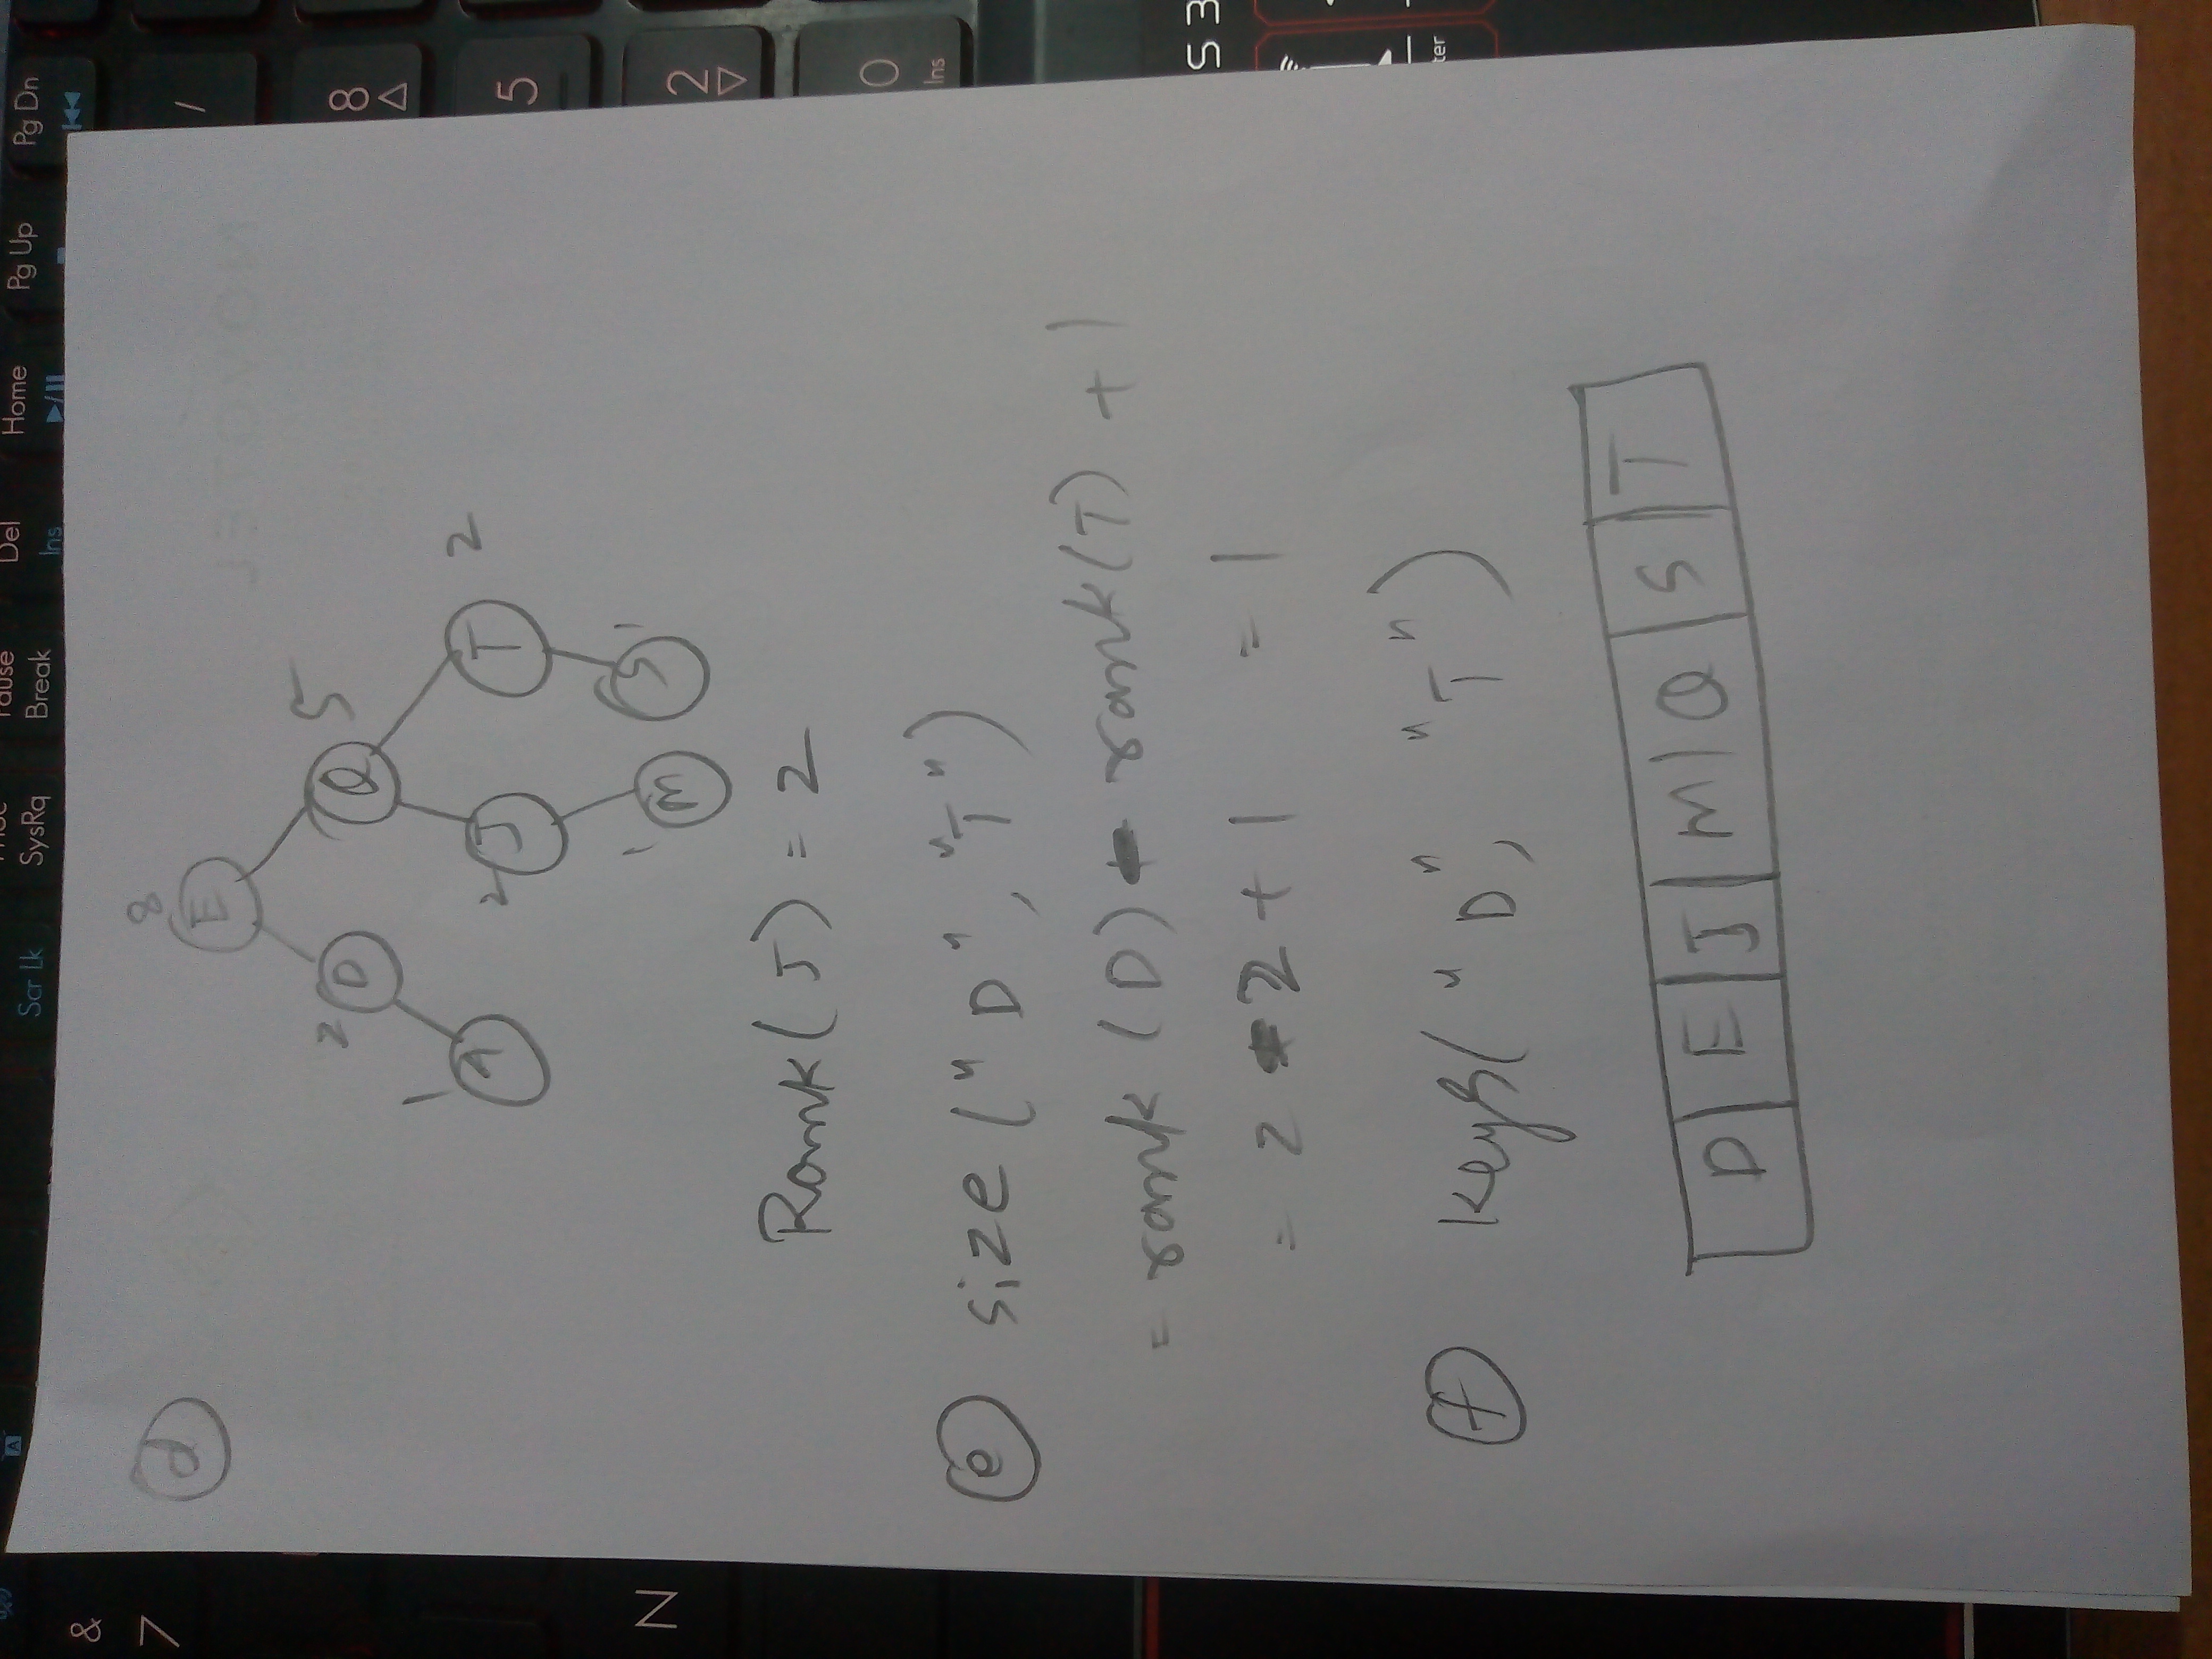 Scr Lk
SysRq
Pause
Break
Del
Ins
Home
Pg Up
Pg Dn
&
7
N
/
8
5
2
0
Ins
S 3
NOVOTEL
d
8
E
2 D
Q 5
1
A
2 J
T 2
1
M
S 1
Rank(J) = 2
e size ("D", "T")
= rank (D) - rank(T) + 1
= 2 - 2 + 1 = 1
f keys("D", "T")
D E J M Q S T